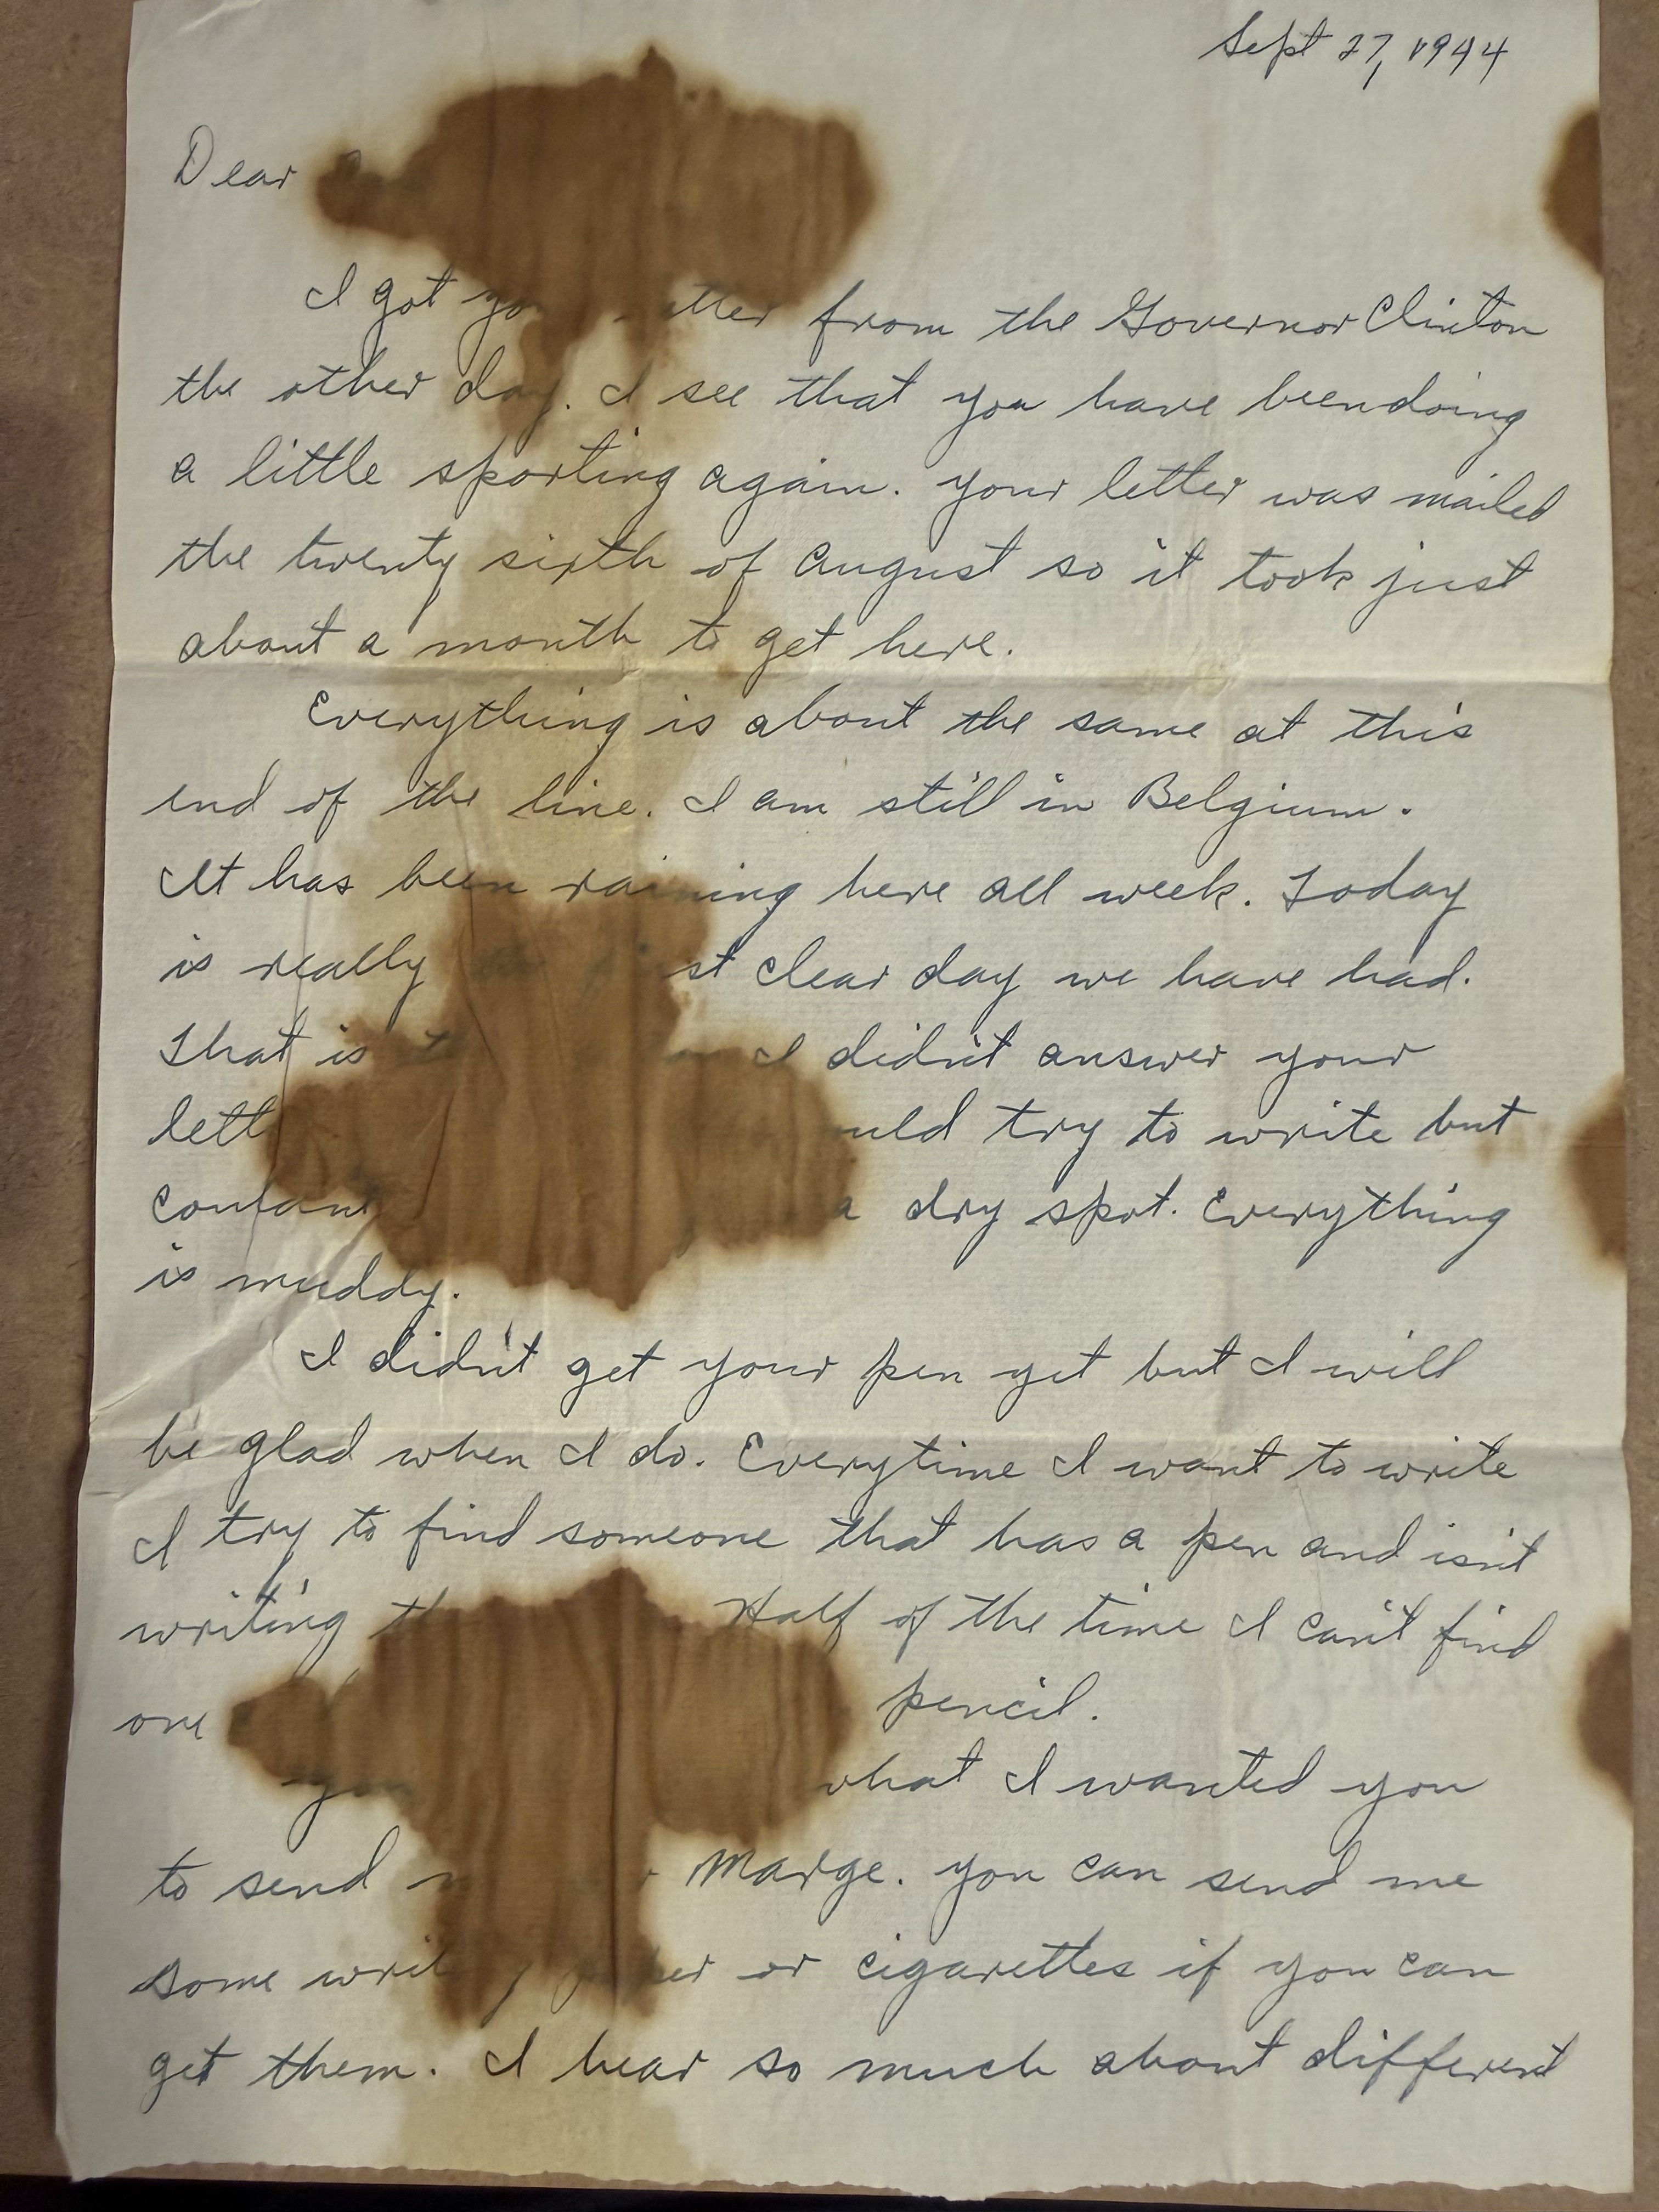 Sept 27, 1944
Dear
I got from the Governor Clinton
the other day. I see that you have beendoing
a little sporting again. your letter was mailed
the twenty sixth of August so it took just
about a month to get here.
Everything is about the same at this
end of the line. I am still in Belgium.
It has been raining here all week. Today
is really clear day we have had.
That is I didn't answer your
try to write but
a dry spot. Everything
is muddy.
I didn't get your pen yet but I will
be glad when I do. Everytime I want to write
I try to find someone that has a pen and isn't
writing Half of the time I can't find
one pencil.
what I wanted you
to send Marge. you can send me
some or cigarettes if you can
get them. I hear so much about different